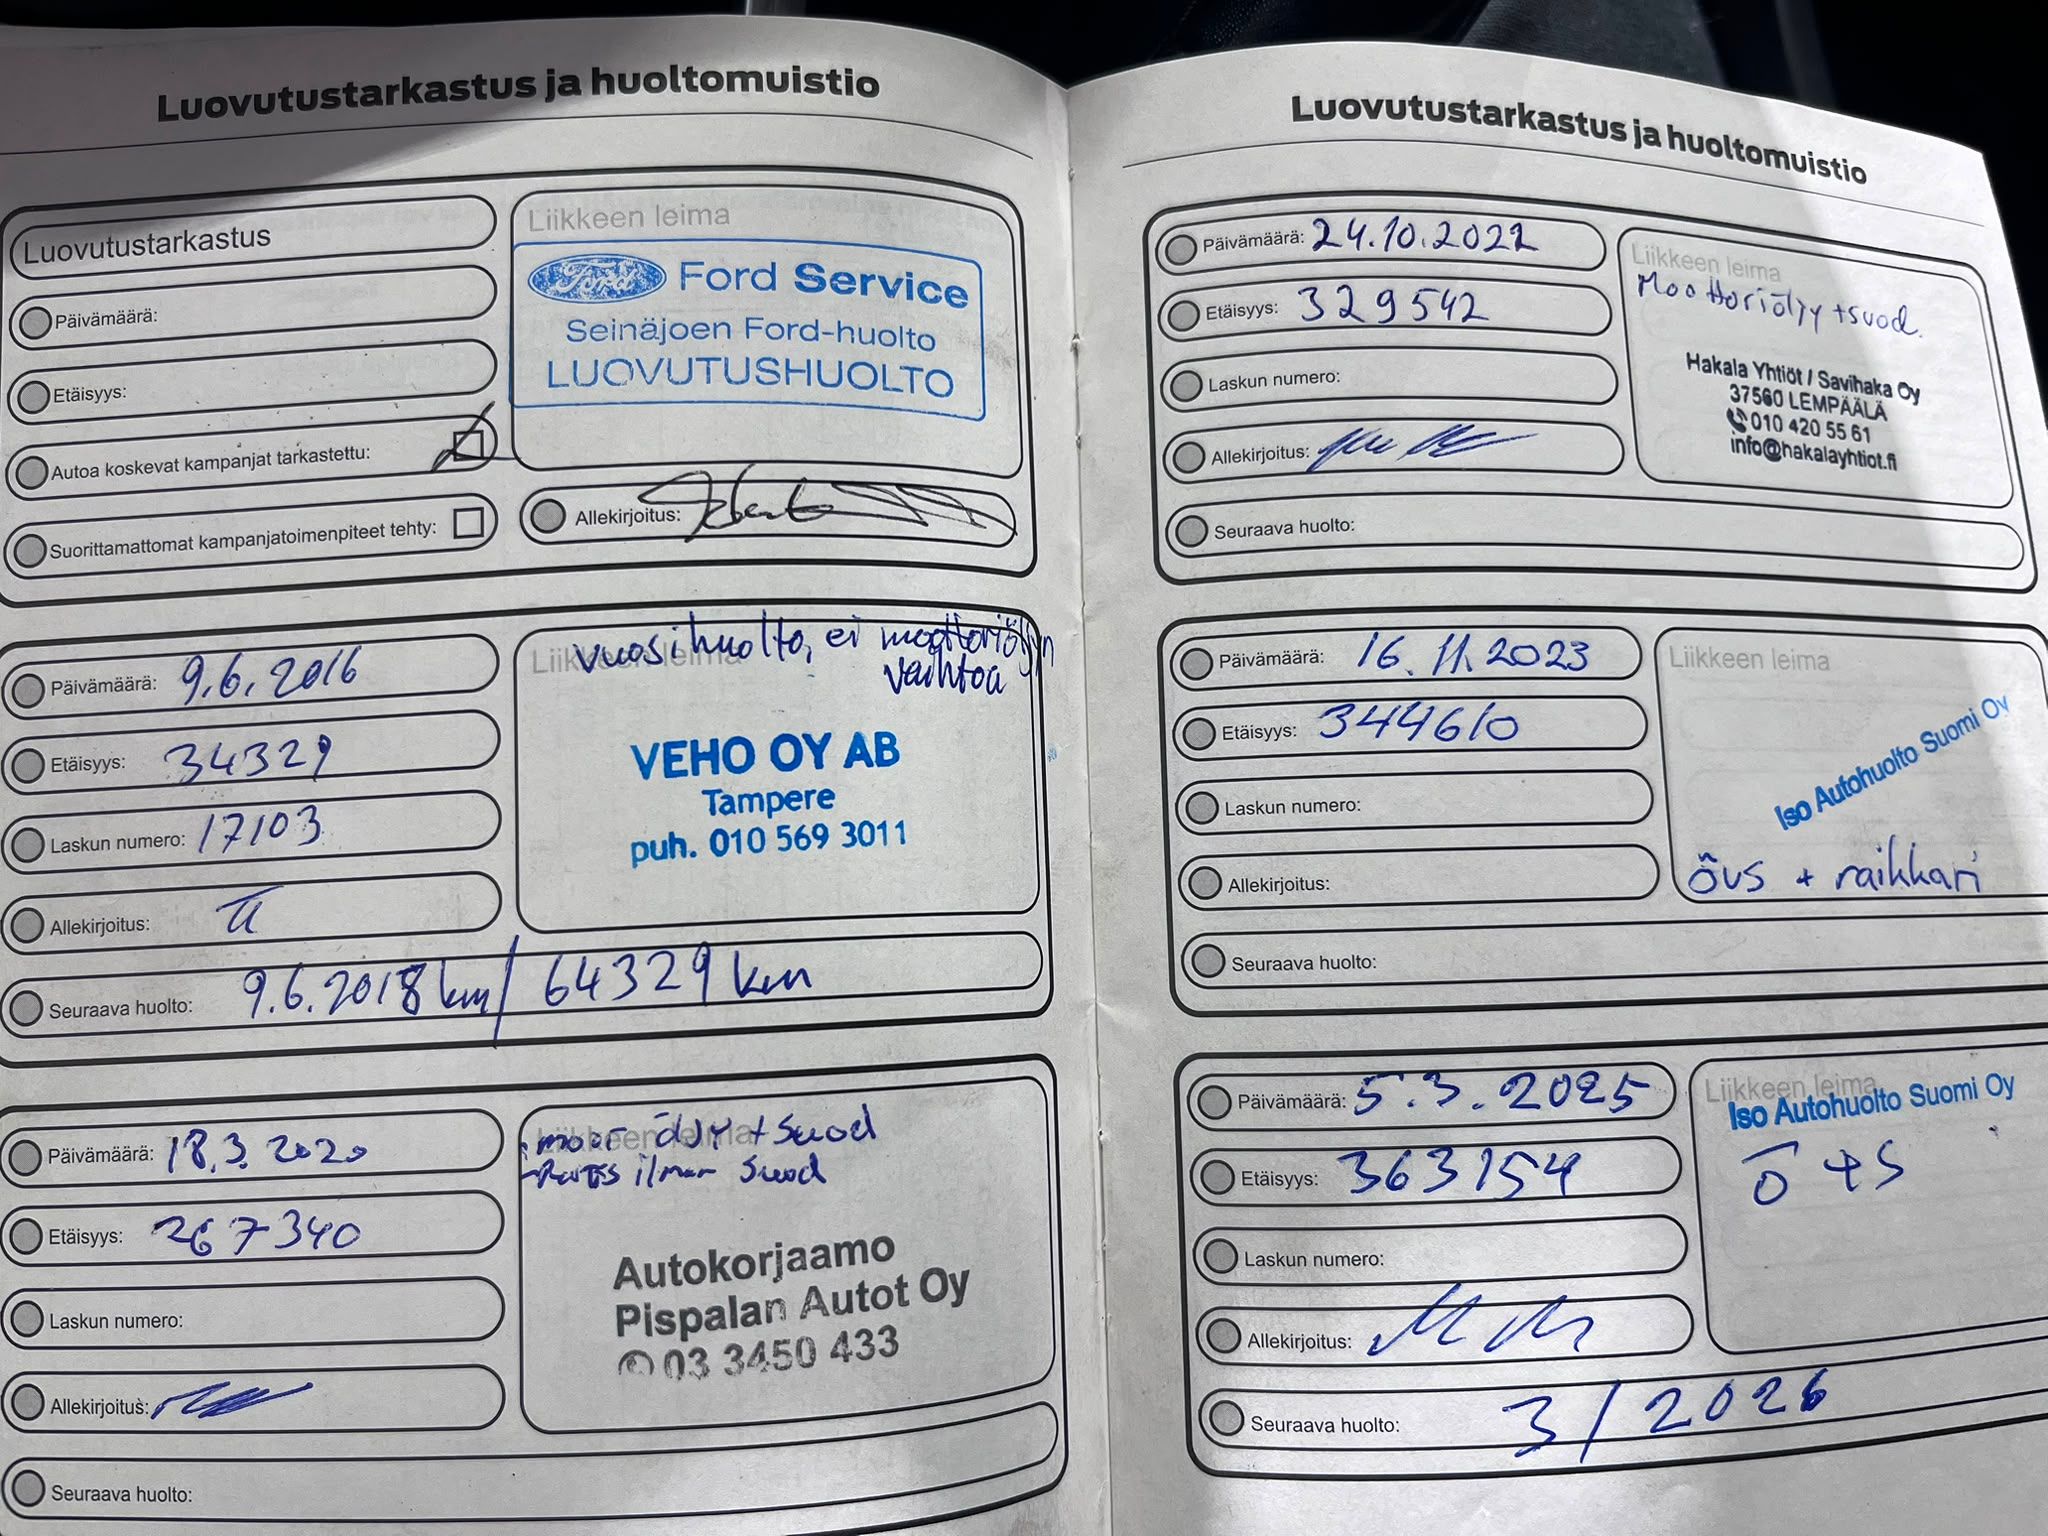 Luovutustarkastus ja huoltomuistio
Luovutustarkastus
Päivämäärä:
Etäisyys:
Autoa koskevat kampanjat tarkastettu:
Suorittamattomat kampanjatoimenpiteet tehty:
Liikkeen leima
Ford Ford Service
Seinäjoen Ford-huolto
LUOVUTUSHUOLTO
Allekirjoitus:
Päivämäärä: 9.6.2016
Etäisyys: 34329
Laskun numero: 17103
Allekirjoitus:
Seuraava huolto: 9.6.2018 km / 64329 km
Liikkeen leima
vuosihuolto, ei moottoriöljyn
vaihtoa
VEHO OY AB
Tampere
puh. 010 569 3011
Päivämäärä: 18.3.2020
Etäisyys: 267340
Laskun numero:
Allekirjoitus:
Seuraava huolto:
Liikkeen leima
öljy + suod
ilman suod
Autokorjaamo
Pispalan Autot Oy
03 3450 433
Luovutustarkastus ja huoltomuistio
Päivämäärä: 24.10.2022
Etäisyys: 329542
Laskun numero:
Allekirjoitus:
Seuraava huolto:
Liikkeen leima
Moottoriöljy + suod.
Hakala Yhtiöt / Savihaka Oy
37560 LEMPÄÄLÄ
010 420 55 61
info@hakalayhtiot.fi
Päivämäärä: 16.11.2023
Etäisyys: 344610
Laskun numero:
Allekirjoitus:
Seuraava huolto:
Liikkeen leima
Iso Autohuolto Suomi Oy
övs + raikkari
Päivämäärä: 5.3.2025
Etäisyys: 363154
Laskun numero:
Allekirjoitus:
Seuraava huolto: 3/2026
Liikkeen leima
Iso Autohuolto Suomi Oy
ö + s